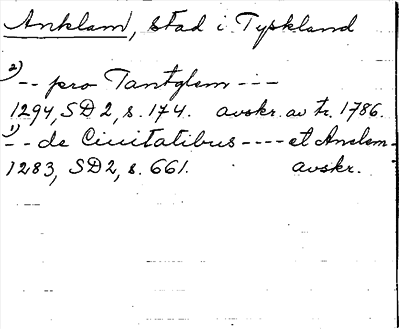 Anklam, stad i Tyskland
2)
-- pro Tantglem ----
1294, SD 2, s. 174. avskr. av tr. 1786.
1)
-- de Ciuitatibus ---- et Anclem -
1283, SD 2, s. 661. avskr.